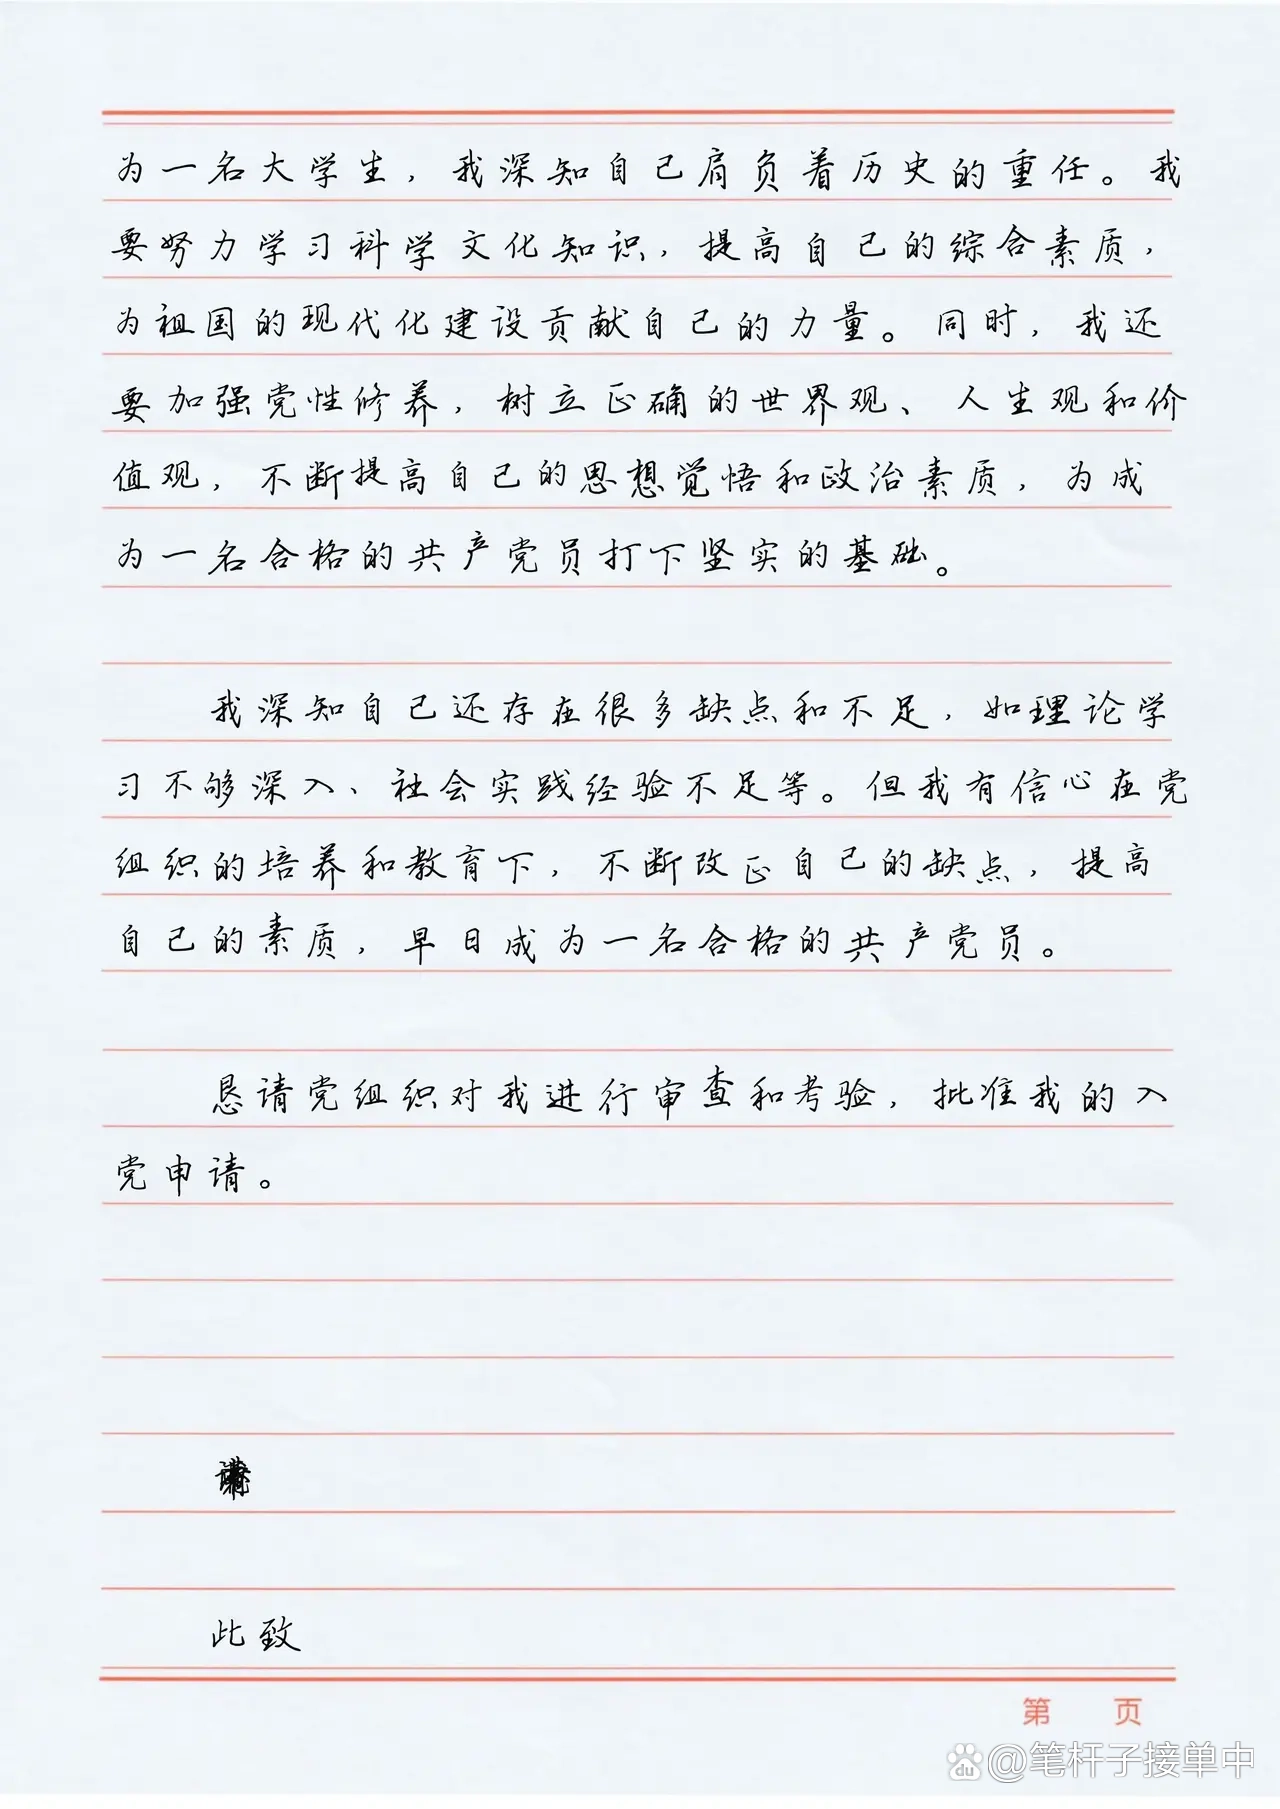 为一名大学生，我深知自己肩负着历史的重任。我
要努力学习科学文化知识，提高自己的综合素质，
为祖国的现代化建设贡献自己的力量。同时，我还
要加强党性修养，树立正确的世界观、人生观和价
值观，不断提高自己的思想觉悟和政治素质，为成
为一名合格的共产党员打下坚实的基础。
我深知自己还存在很多缺点和不足，如理论学
习不够深入、社会实践经验不足等。但我有信心在党
组织的培养和教育下，不断改正自己的缺点，提高
自己的素质，早日成为一名合格的共产党员。
恳请党组织对我进行审查和考验，批准我的入
党申请。
此致
第 页
du @笔杆子接单中